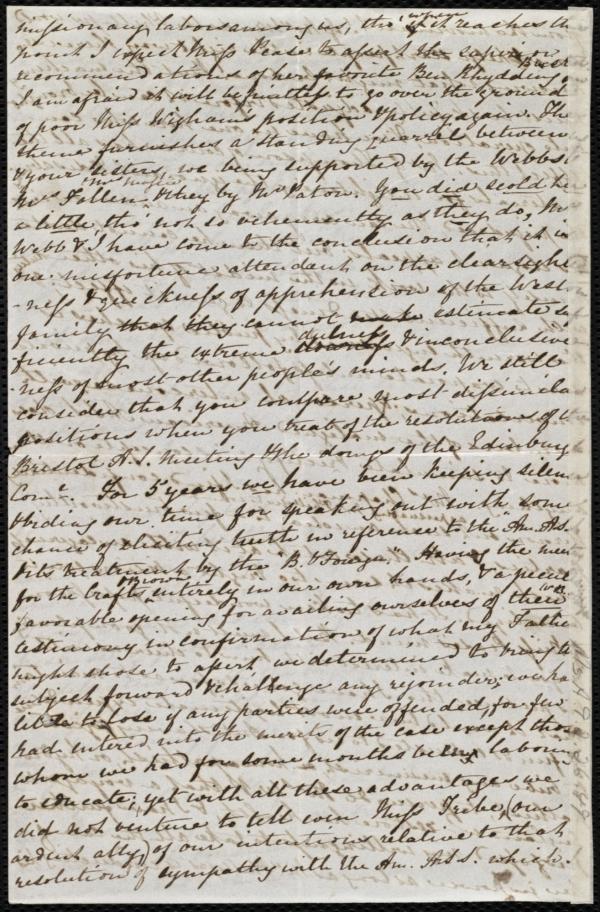 missionary labors among us, tho' when it reaches th
point I expect Miss Pease to assert the superior
recommendations of her favorite Ben Rhydding.
I am afraid it will be fruitless to go over the ground
of poor Miss Wigham's position & policy again. The
theme furnishes a standing quarrel between
& your sisters, we being supported by the Webbs
Mrs Follen, & they by Mr Paton. You did scold her
a little, tho' not so vehemently as they do, Mr
Webb & I have come to the conclusion that it is
one misfortune attendant on the clearsighted
-ness & quickness of apprehension of the West.
family that they cannot estimate suf
ficiently the extreme dulness & inconclusive
-ness of most other people's minds. We still
consider that you compare most dissimilar
positions when you treat of the resolutions of
Bristol A.S. Meeting & the doings of the Edinburgh
Comee. For 5 years we have been keeping silence
& biding our time for speaking out with some
chance of eliciting truth in reference to the Am. A.S.
& its treatment by the "B. & Foreign." Having the men
for the Crafts & Brown entirely in our own hands, & a peculi
favorable opening for availing ourselves of their
testimony in confirmation of what my Father
might chose to assert, we determined to bring the
subject forward & challenge any rejoinder; we ha
little to lose if any parties were offended, for few
had entered into the merits of the case except those
whom we had for some months been laboring
to educate; yet with all these advantages we
did not venture to tell even Miss Tribe, (our
ardent ally,) of our intentions relative to that
resolution of sympathy with the Am. A.S.S. which.